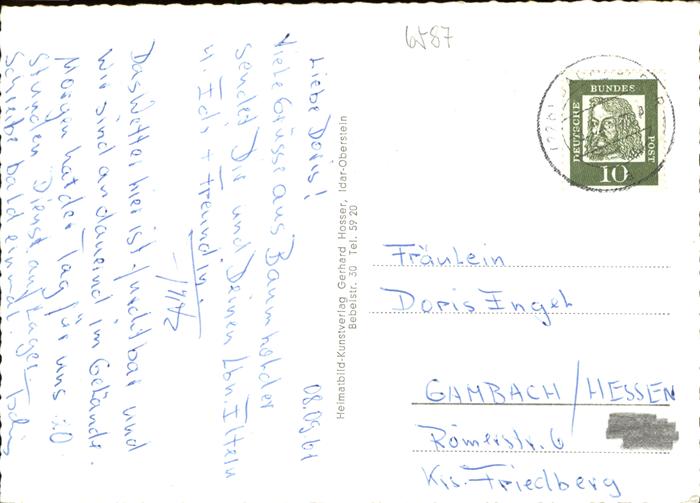 6587
08.09.61
Liebe Doris!
Viele Grüsse aus Baumholder
sendet Dir und Deinen lbn. Eltern
u. Idr + Freundin.
Das Wetter hier ist furchtbar und
wir sind andauernd im Gelände.
Morgen hat der Tag für uns 20
Stunden Dienst auf Lager
Schreibe bald einmal
Heimatbild-Kunstverlag Gerhard Hosser, Idar-Oberstein
Bebelstr. 30 Tel. 59 20
DEUTSCHE BUNDESPOST
10
Fräulein
Doris Engel
GAMBACH/HESSEN
Römerstr. 6
Krs. Friedberg